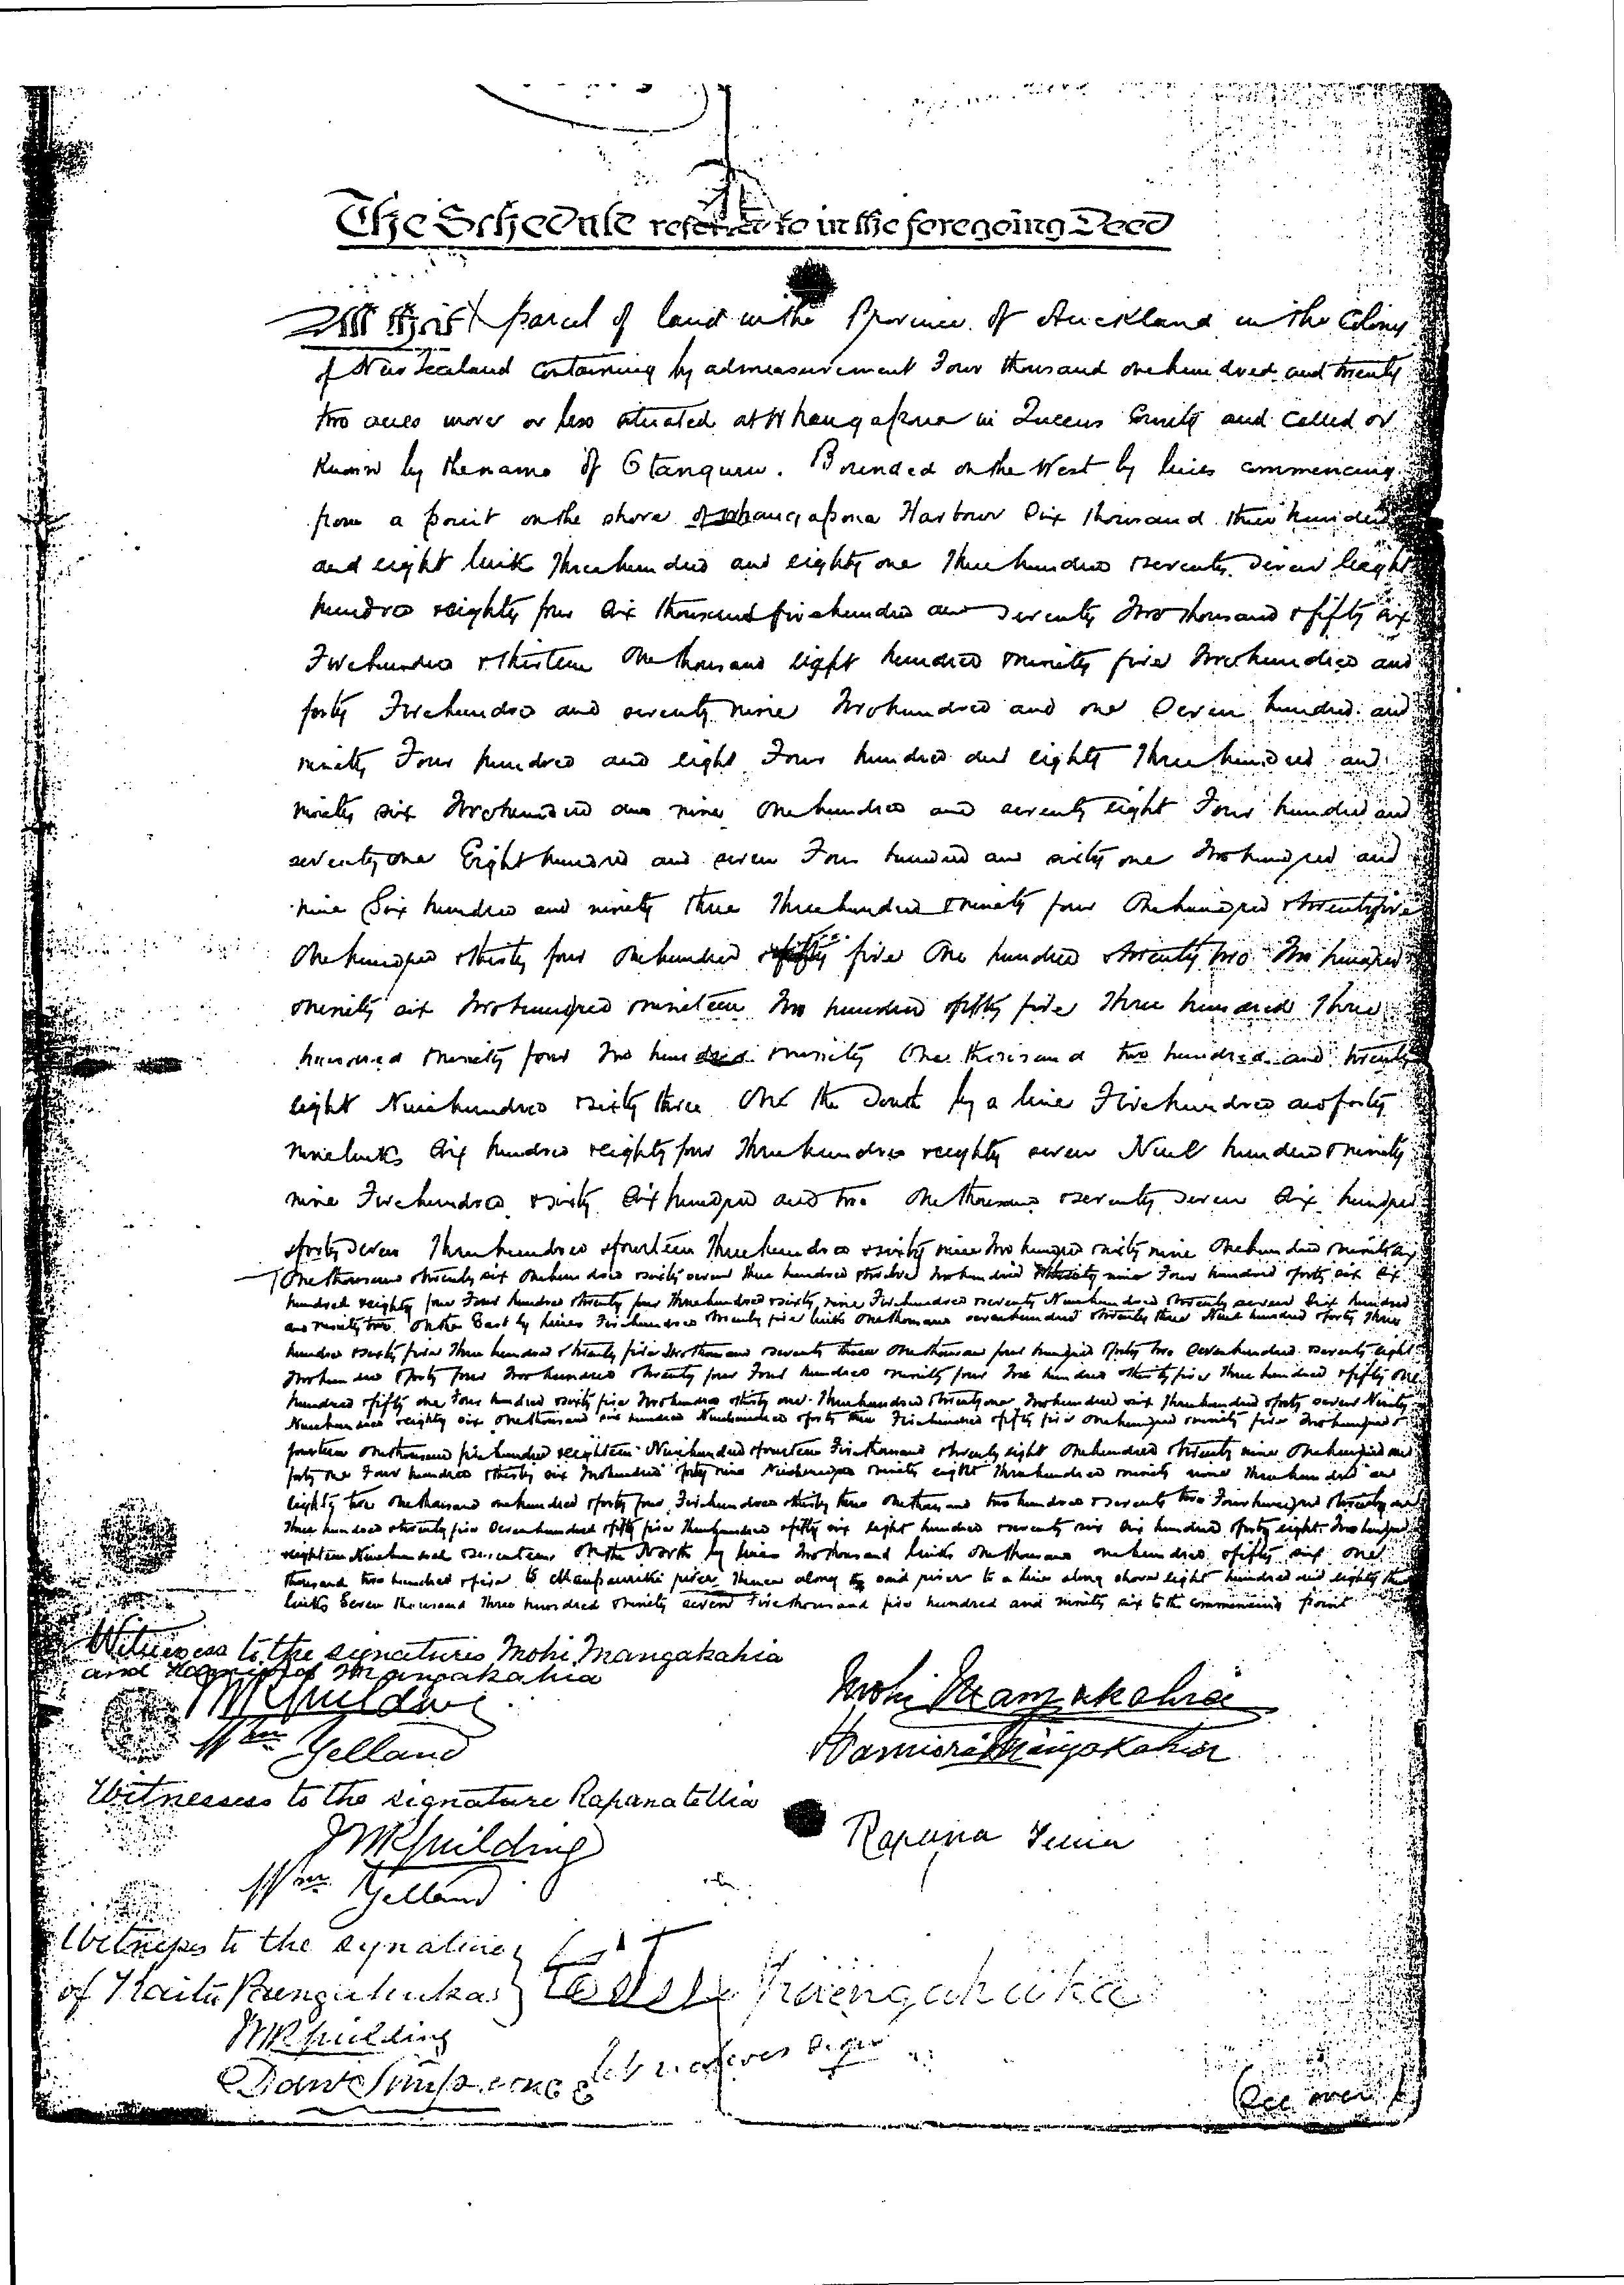 The Schedule referred to in the foregoing Deed
All that parcel of land in the Province of Auckland in the Colony
of New Zealand containing by admeasurement Four thousand one hundred and twenty
two acres more or less situated at Whangapoua in Queens County and called or
known by the name of Otanguru. Bounded on the West by lines commencing
from a point on the shore of Whangapoua Harbour Six thousand three hundred
and eight links Three hundred and eighty one Three hundred & seventy seven Eight
hundred & eighty four Six thousand five hundred and seventy Two thousand & fifty six
Five hundred & thirteen One thousand eight hundred & ninety five Two hundred and
forty Five hundred and seventy nine Two hundred and one Seven hundred and
ninety Four hundred and eight Four hundred and eighty Three hundred and
ninety six Two hundred and nine One hundred and seventy eight Four hundred and
seventy one Eight hundred and seven Four hundred and sixty one Two hundred and
nine Six hundred and ninety three Three hundred & ninety four One hundred & twenty five
One hundred & thirty four One hundred & five One hundred & twenty two Two hundred
& ninety six Two hundred & nineteen Two hundred & fifty five Three hundred Three
hundred & ninety four Two hundred & ninety One thousand two hundred and twenty
eight Nine hundred & sixty three On the South by a line Five hundred and forty
nine links Six hundred & eighty four Three hundred & eighty seven Nine hundred & ninety
nine Five hundred & sixty Six hundred and two One thousand & seventy seven Six hundred
& forty seven Three hundred & fourteen Three hundred & sixty nine Two hundred & sixty nine One hundred & ninety six
One thousand & twenty six One hundred & sixty seven Three hundred & twelve Two hundred & nine Four hundred & forty six Six
hundred & eighty four Four hundred & twenty four Three hundred & sixty nine Five hundred & seventy Nine hundred & twenty seven Six hundred
and ninety two On the East by lines Five hundred & twenty five links One thousand seven hundred & twenty three Nine hundred & forty Three
hundred & sixty five Three hundred & twenty five Two thousand & seventy three One thousand four hundred & forty two Seven hundred & seventy eight
Two hundred & forty four Two hundred & twenty four Four hundred & ninety four Two hundred & thirty five Three hundred & fifty One
hundred & fifty one Four hundred & sixty five Two hundred & thirty one Three hundred & twenty one Two hundred & six Three hundred & forty seven Ninety
Nine hundred & eighty six One thousand six hundred Nine hundred & forty two Five hundred & fifty five One hundred & ninety five Two hundred &
fourteen One thousand five hundred & eighteen Nine hundred & fourteen Five thousand & twenty eight One hundred & twenty nine One hundred and
forty one Four hundred & thirty six Two hundred & forty nine Nine hundred & ninety eight Three hundred & ninety nine Three hundred and
eighty two One thousand one hundred & forty four Five hundred & thirty three One thousand two hundred & seventy two Four hundred & twenty
Three hundred & twenty five Seven hundred & fifty five Three hundred & fifty six Eight hundred & seventy six Six hundred & forty eight Two hundred
& eighteen Nine hundred & seventeen On the North by lines Two thousand links One thousand one hundred & fifty six One
thousand two hundred & five to river Thence along the said river to a line along shore eight hundred and eighty three
links Seven thousand three hundred & ninety seven Five thousand five hundred and ninety six to the commencing point
Witnesses to the signatures Mohi Mangakahia
and Mangakahia
Mohi Mangakahia
Wm Yelland
Hamiora Mangakahia
Witnesses to the signature Rapana
Rapana
Wm Yelland
Witnesses to the signature
of
(See over)